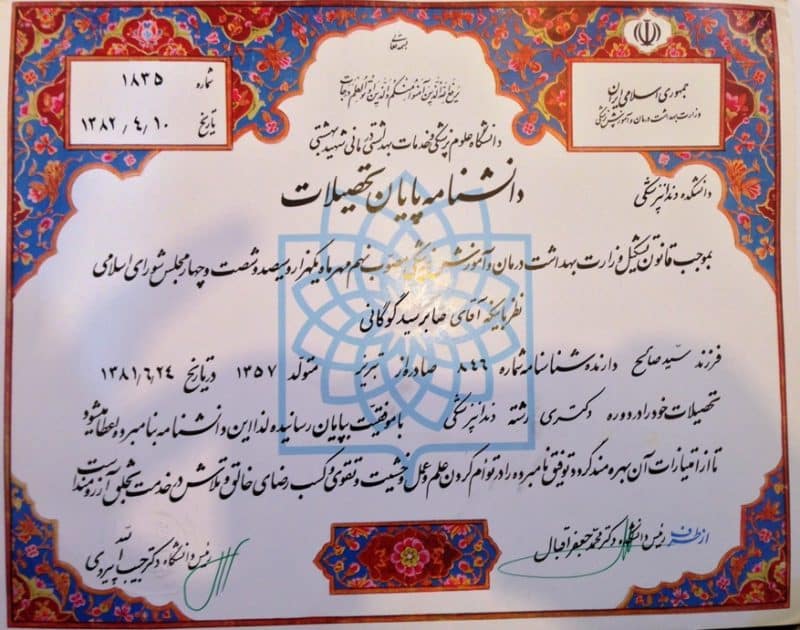 بسمه تعالی
یرفع الله الذین آمنوا منکم والذین اوتوا العلم درجات
شماره ۱۸۳۵
تاریخ ۱۳۸۲/۴/۱۰
جمهوری اسلامی ایران
وزارت بهداشت درمان و آموزش پزشکی
دانشگاه علوم پزشکی و خدمات بهداشتی درمانی شهید بهشتی
دانشکده دندانپزشکی
دانشنامه پایان تحصیلات
بموجب قانون تشکیل وزارت بهداشت درمان و آموزش پزشکی مصوب نهم مهرماه یکهزار و سیصد و شصت و چهار مجلس شورای اسلامی
نظر باینکه آقای صابر سید گوگانی
فرزند سید صالح دارنده شناسنامه شماره ۸۴۶ صادره از تبریز متولد ۱۳۵۷ در تاریخ ۱۳۸۱/۶/۲۴
تحصیلات خود را در دوره دکتری رشته دندانپزشکی با موفقیت بپایان رسانیده لذا این دانشنامه بنامبرده اعطا میشود
تا از امتیازات آن بهره مند گردد و توفیق نامبرده را در توأم کردن علم و عمل و خشیت و تقوی و کسب رضای خالق و تلاش در خدمت بخلق آرزومند است
از طرف رئیس دانشکده دکتر محمد جعفر اقبال
رئیس دانشگاه دکتر حبیب الله پیروی